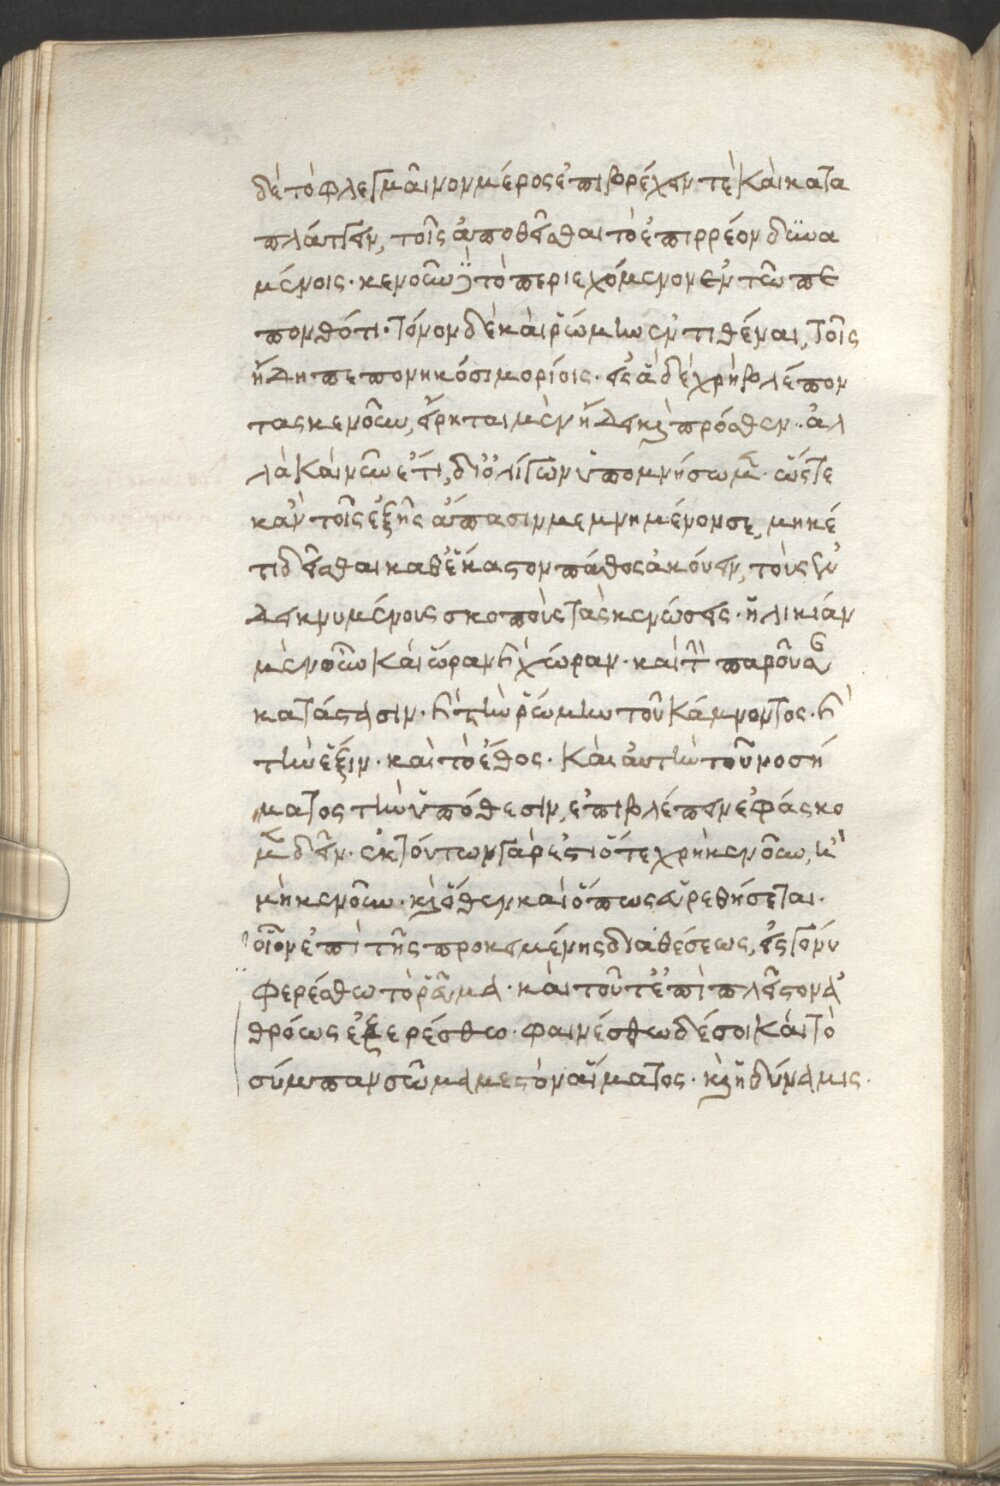 δὲ τὸ φλεγμαῖνον μέρος ἐπιβρέχειν τε καὶ κατα
πλάττειν, τοῖς ἀποθεῖσθαι τὸ ἐπιρρέον δυνα
μένοις· κενοῦν τὸ περιεχόμενον ἐν τῶ πε
πονθότι· τόνον δὲ καὶ ῥώμην ἐντιθέναι, τοῖς
ἤδη πεπονηκόσι μορίοις· εἰς ἃ δὲ χρὴ βλέπον
τας κενοῦν, εἴρηται μὲν ἤδη καὶ πρόσθεν· ἀλ
λὰ καὶ νῦν ἔτι, δι' ὀλίγων ὑπομνήσωμεν· ὥστε
κἀν τοῖς ἑξῆς ἅπασιν μεμνημένον σε, μηκέ
τι δεῖσθαι καθ' ἕκαστον πάθος ἀκούειν, τοὺς ἐν
δεικνυμένους σκοποὺς τὰς κενώσεις· ἡλικίαν
μὲν οὖν καὶ ὥραν καὶ χώραν· καὶ τὴν παροῦσαν
κατάστασιν· καὶ τὴν ῥώμην τοῦ κάμνοντος· καὶ
τὴν ἕξιν· καὶ τὸ ἔθος· καὶ αὐτὴν τοῦ νοσή
ματος τὴν ὑπόθεσιν, ἐπιβλέπειν ἐφάσκο
μεν δεῖν· ἐκ τούτων γάρ ἐστι ὅτε χρὴ κενοῦν, καὶ
μὴ κενοῦν· καὶ ὅθεν καὶ ὅπως εὑρεθήσεται·
οἷον ἐπὶ τῆς προκειμένης διαθέσεως, εἰς γόνυ
φερέσθω τὸ ῥεῦμα· καὶ τοῦτ' ἐπὶ πλεῖστον ἀ
θρόως ἐξερέσθω· φαινέσθω δέ σοι καὶ τὸ
σύμπαν σῶμα μεστὸν αἵματος· καὶ ἡ δύναμις·